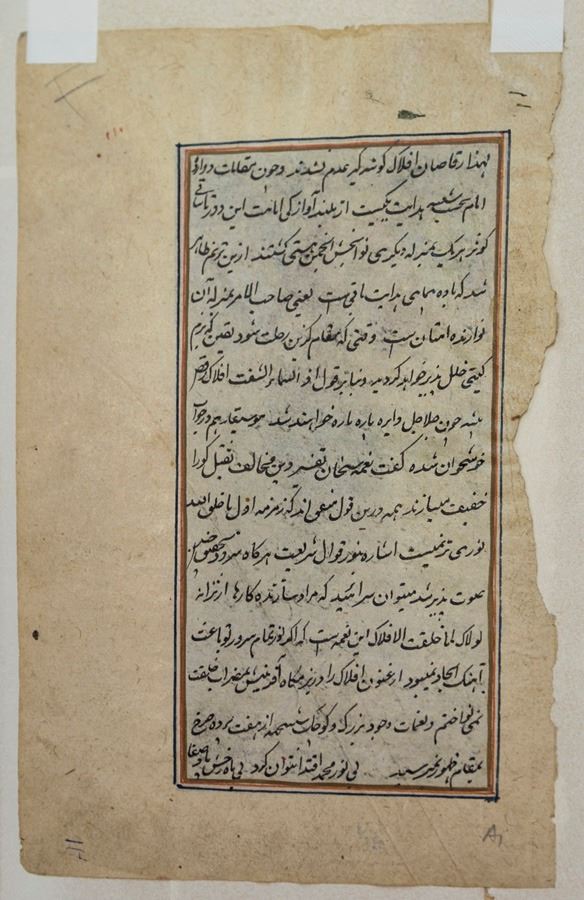 لهذا رقاصان افلاک گوشه گیر عدم نشدند و چون مقامات دوازده
امام شعبه هدایت یکیست از بلند آوازگی امامت این دو
کوثر هر یک بمنزله دیگری نوا بخش انجمن هستی گشتند ازین ترنم ظاهر
شد که باده پیمای هدایت باقیست یعنی صاحب الامر بمنزله آن
نوازنده امتنان است وقتی که بمقام گزین رحلت شود یقین که بزم
گیتی خلل پذیر خواهد گردید و بنابر قول اذا السماء انشقت افلاک رقص
پیشه چون جلاجل دایره پاره پاره خواهند شد موسیقار هم در جواب
خوشخوان شده گفت نغمه سنجان تفسیر دین مخالف ثقیل کو را
خفیف میسازند همه درین قول متفق اند که زمزمه اول ما خلق الله
نوری ترنمیست اشاره بنور قوال شریعت هرگاه سرود
صوت پذیر شد میتوان سرائید که مراد سازنده کارها از ترانه
لولاک لما خلقت الافلاک این نغمه است که اگر نور تمام سرور تو باعث
آهنگ ایجاد نمیبود ارغنون افلاک را در بزمگاه آفرینش بمضراب خلقت
نمی نواختم و نغمات وجود بزرگ و کوچک از هفت پرده چرخ
بمقام ظهور نمیرسید بی نور محمد اقتدا نتوان کرد بی ماه رخش
A1